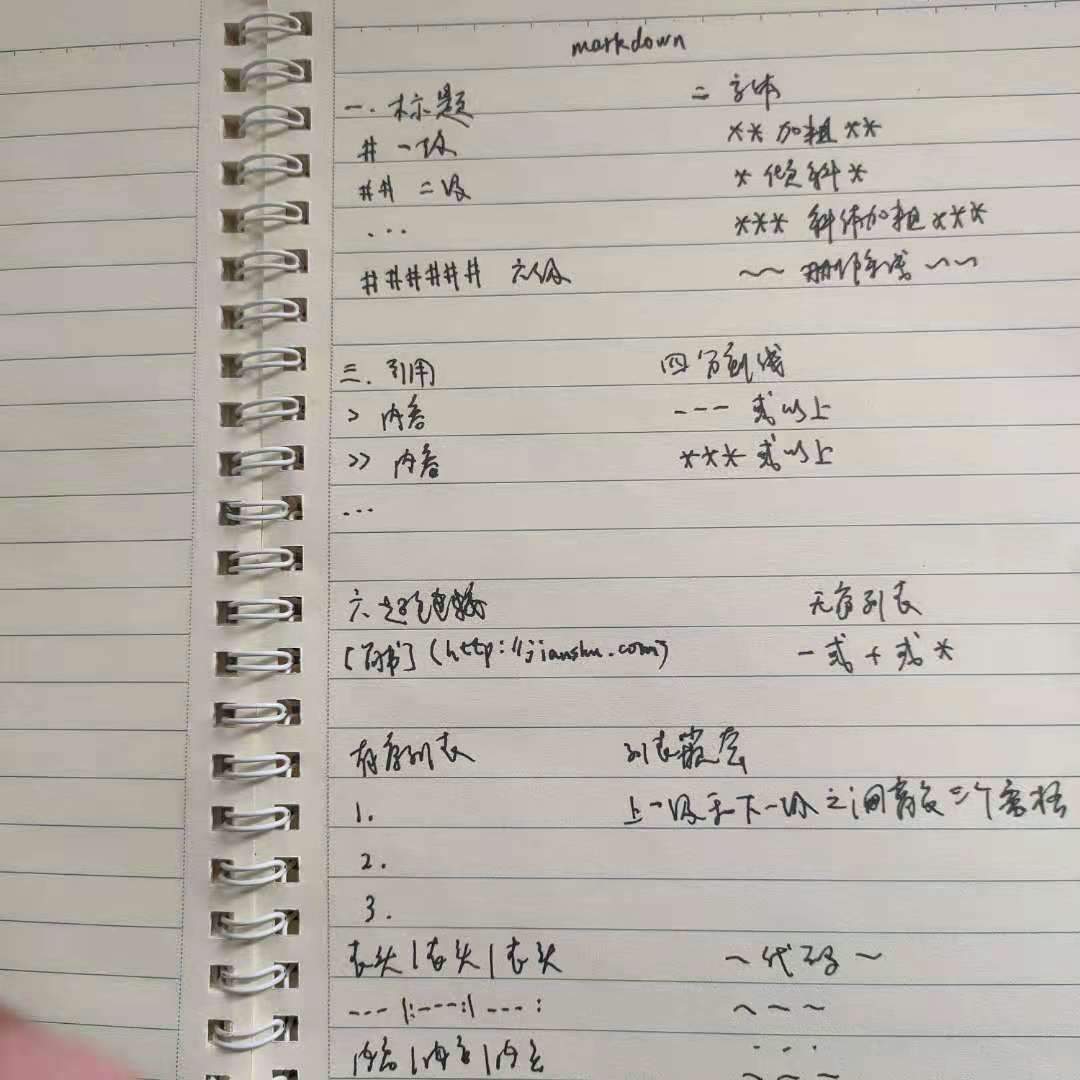 markdown
一. 标题
# 一级
## 二级
...
###### 六级
二 字体
** 加粗 **
* 倾斜 *
*** 斜体加粗 ***
~~ 删除线 ~~
三. 引用
> 内容
>> 内容
...
四 分割线
--- 或以上
*** 或以上
六 超链接
[简书] (http://jianshu.com)
无序列表
- 或 + 或 *
有序列表
1.
2.
3.
列表嵌套
上一级和下一级之间 三个空格
表头 | 表头 | 表头
--- |:---:| ---:
内容 | 内容 | 内容
~ 代码 ~
~ ~ ~
...
~ ~ ~